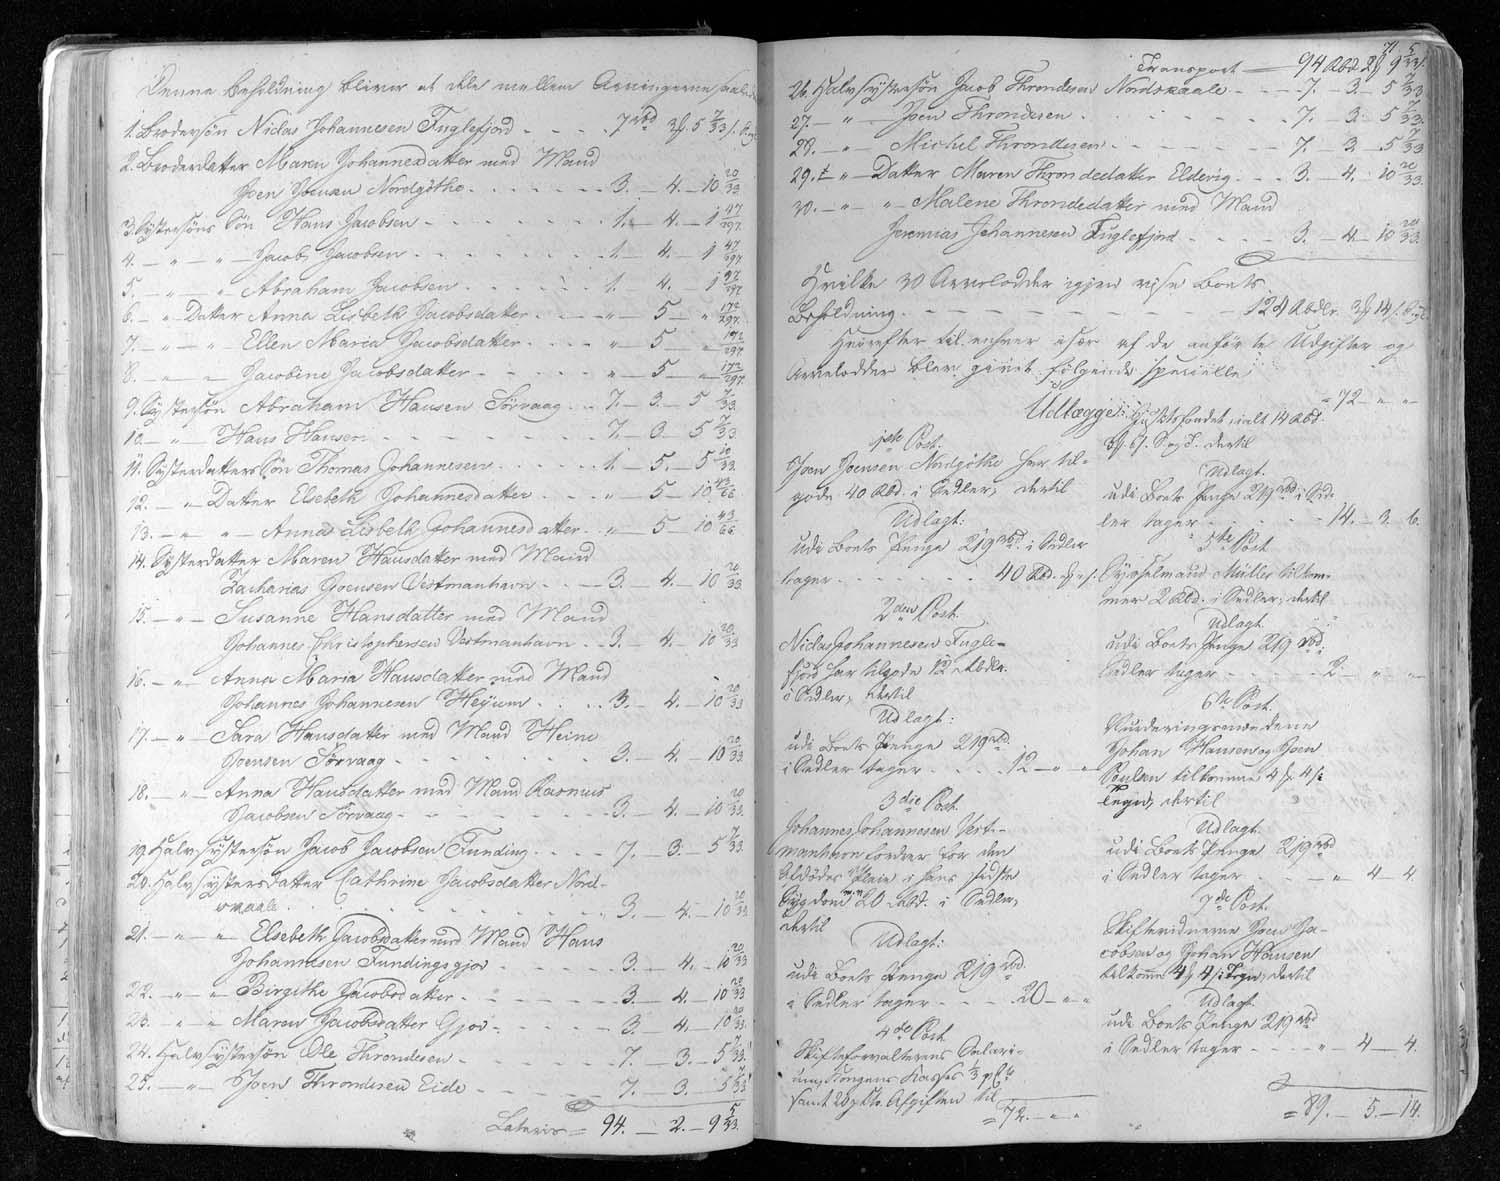 Denne Beholdning bliver at dele mellem Arvingerne saaledes
1. Brodersøn Niclas Johannesen Fuglefjord - - - - 7 rbd 3 ℔ 5 7/33 s.
2. Broderdatter Maren Johannesdatter med Mand
Joen Joensen Nordgøthe - - - - - - 3. — 4. — 10 20/33
3. Systersøns Søn Hans Jacobsen - - - - - - 1. — 4. — 1 47/297
4. — " — " — Jacob Jacobsen - - - - - - 1. — 4. — 1 47/297
5. — " — " — Abraham Jacobsen - - - - - 1. — 4. — 1 47/297
6. — " — Datter Anna Lisbeth Jacobsdatter - - - " — 5 — " 172/297
7. — " — " — Ellen Maria Jacobsdatter - - - - " — 5 — " 172/297
8. — " — " — Jacobine Jacobsdatter - - - - - " — 5 — " 172/297
9. Systersøn Abraham Hansen Sørvaag - - 7. — 3. — 5 7/33
10. — " — Hans Hansen - - - - - - - 7. — 3. — 5 7/33
11. Systerdatters Søn Thomas Johannesen - - - - - 1. — 5. — 5 10/33
12. — " Datter Elsebeth Johannesdatter - - - " — 5 — 10 43/66
13. — " — " — Anna Lisbeth Johannesdatter - - " — 5 — 10 43/66
14. Systerdatter Maren Hansdatter med Mand
Zacharias Joensen Vestmanhavn - - - 3. — 4. — 10 20/33
15. — " — Susanne Hansdatter med Mand
Johannes Christophersen Vestmanhavn - - 3. — 4. — 10 20/33
16. — " — Anna Maria Hansdatter med Mand
Johannes Johannesen - - - - 3. — 4. — 10 20/33
17. — " — Sara Hansdatter med Mand Heine
Joensen Sørvaag - - - - - - 3. — 4. — 10 20/33
18. — " — Anna Hansdatter med Mand Rasmus
Jacobsen Sørvaag - - - - - - 3. — 4. — 10 20/33
19. Halvsystersøn Jacob Jacobsen Funding - - - - 7. — 3. — 5 7/33
20. Halvsystersdatter Cathrine Jacobsdatter Nord-
skaale - - - - - - - - 3. — 4. — 10 20/33
21. — " — " Elsebeth Jacobsdatter med Mand Hans
Johannesen Fundingsgjov - - - - - 3. — 4. — 10 20/33
22. — " — " Birgithe Jacobsdatter - - - - - 3. — 4. — 10 20/33
23. — " — " Maren Jacobsdatter Gjov - - - - - 3. — 4. — 10 20/33
24. Halvsystersøn Ole Throndesen - - - - - 7. — 3. — 5 7/33
25. — " — Joen Throndesen Eide - - - - - 7. — 3. — 5 7/33
Lateris = 94. — 2. — 9 5/33
71
Transport — 94 Rbd 2 ℔ 9 5/33 s.
26. Halvsystersøn Jacob Throndesen Nordskaale - - - 7. — 3 — 5 7/33
27. — " — Joen Throndesen - - - - - - 7. — 3. 5 7/33
28. — " — Michel Throndesen - - - - - 7. — 3 — 5 7/33
29. — " — Datter Maren Throndedatter Eldevig - - - 3. — 4. — 10 20/33
30. — " — " — Malene Throndedatter med Mand
Jeremias Johannesen Fuglefjord - - - - 3. — 4. — 10 20/33
Hvilke 30 Arvelodder igjen vise Boets
Beholdning - - - - - - - - - 3 ℔ 14 s.
Hvorefter til enhver især af de anførte Udgifter og
Arvelodder blev givet følgende specielle
Udlægge:
1ste Post.
Joen Joensen Nordgøthe har til-
gode 40 Rbd. i Sedler, dertil
Udlagt:
udi Boets Penge 219 rbd. i Sedler
tager - - - - - - 40 Rbd. " ℔ " s.
2den Post.
Niclas Johannesen Fugle-
fjord har tilgode 12 Rbdlr.
i Sedler, dertil
Udlagt:
udi Boets Penge 219 rbd.
i Sedler tager - - - 12 — " — "
3die Post.
Johannes Johannesen Vest-
manhavn fordrer for den
Afdødes Pleie i hans sidste
Sygdom 20 Rbd. i Sedler,
dertil
Udlagt:
udi Boets Penge 219 rbd.
i Sedler tager - - - 20 — " — "
4de Post
Skifteforvalterens Salari-
um, Kongens Kasses 1/3 pCt.
samt Afgiften til
= 72. — " — "
= 72 — " — "
ialt 14 Rbd.
3 ℔ 6 s. dertil
Udlagt.
udi Boets Penge 219 rbd i Sed-
ler tager - - - - - 14. — 3. — 6.
5te Post
Sysselmand Müller tilkom-
mer 2 Rbd. i Sedler, dertil
Udlagt.
udi Boets Penge 219 rbd. i
Sedler tager - - - - - 2 — " — "
6te Post.
Vurderingsmændene
Johan Hansen og Joen
Poulsen tilkomme 4 ℔ 4 s.
Tegn, dertil
Udlagt.
udi Boets Penge 219 rbd
i Sedler tager - - - - " — 4 — 4.
7de Post.
Skiftevidnerne Joen Ja-
cobsen og Johan Hansen
tilkomme 4 ℔ 4 s. Tegn, dertil
Udlagt.
udi Boets Penge 219 rbd
i Sedler tager - - - - " — 4 — 4.
= 89. — 5. — 14.